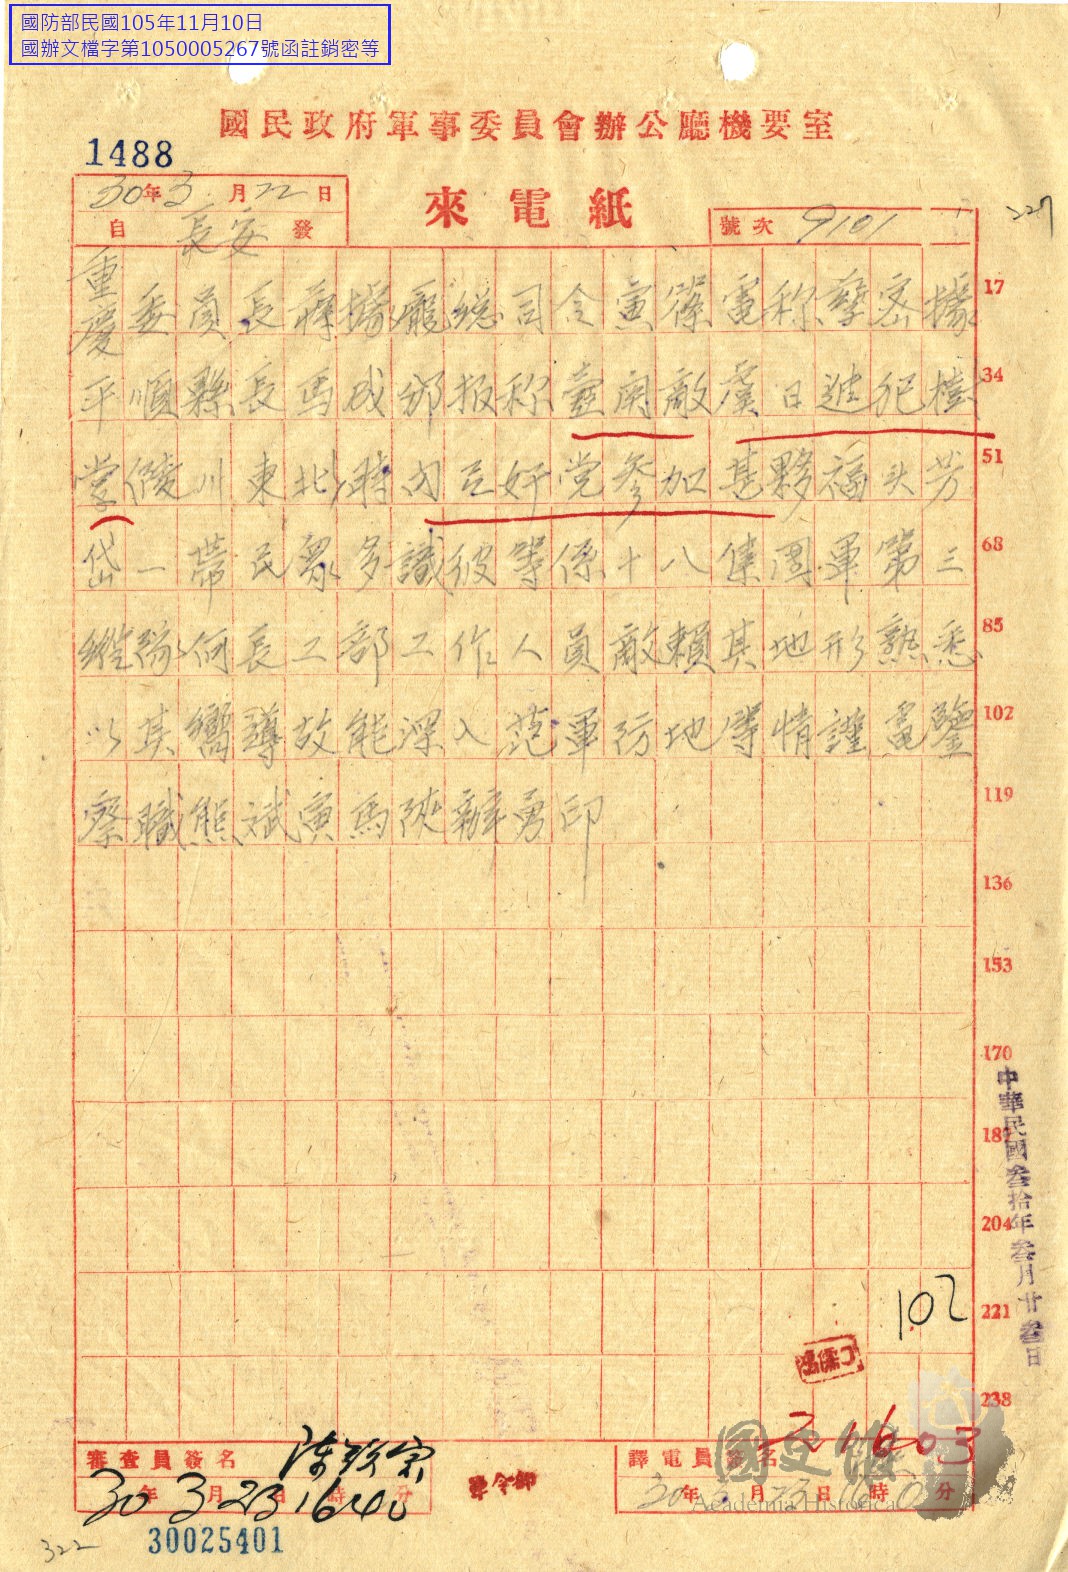 國防部民國105年11月10日
國辦文檔字第1050005267號函註銷密等
國民政府軍事委員會辦公廳機要室
1488
30年3月22日
自長安發
來電紙
號次 9101
227
重慶委員長蔣據龐總司令黨篠電称孽密據 17
平順縣長馬成邠报称壼関敵虞日进犯樹 34
掌陵川東北時内有奸党参加甚夥福头芳 51
岱一帶民眾多識彼等係十八集團軍第三 68
縱隊何長工部工作人員敵賴其地形熟悉 85
以其嚮導故能深入范軍防地等情謹電鑒 102
察職熊斌寅馬陝辦勇印 119
136
153
170
187
204
221
238
中華民國叁拾年叁月廿叁日
102
審查員簽名
30年3月23日16時40分
軍令部
譯電員簽名
1603
30年3月23日16時0分
國史館
Academia Historica
322
30025401